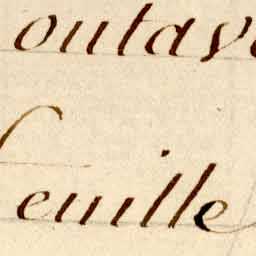 outav
euille